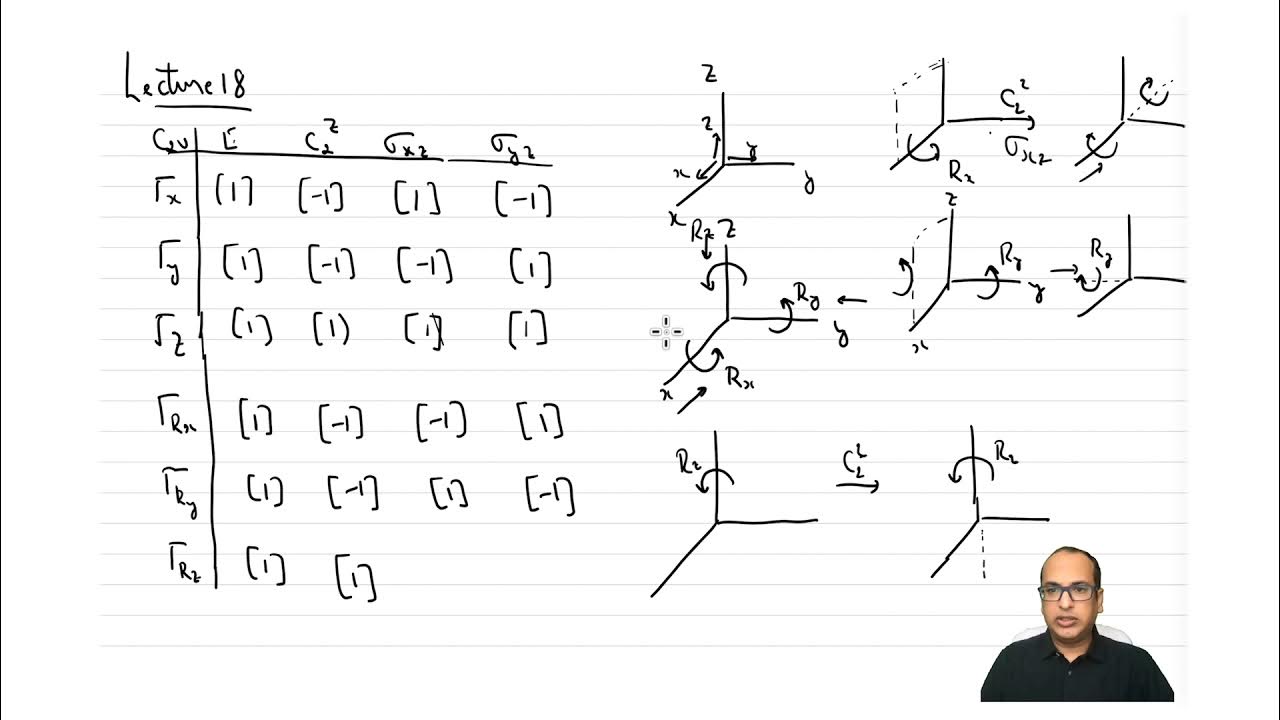 Lecture 18
C2v E C2^z σxz σyz
Γx [1] [-1] [1] [-1]
Γy [1] [-1] [-1] [1]
Γz [1] [1] [1] [1]
ΓRx [1] [-1] [-1] [1]
ΓRy [1] [-1] [1] [-1]
ΓRz [1] [1]
z
z
y
x
y
x
C2^z
σxz
Rx
Rz
z
Ry
y
x
Rx
z
Ry
y
x
Ry
Rz
C2^z
Rz